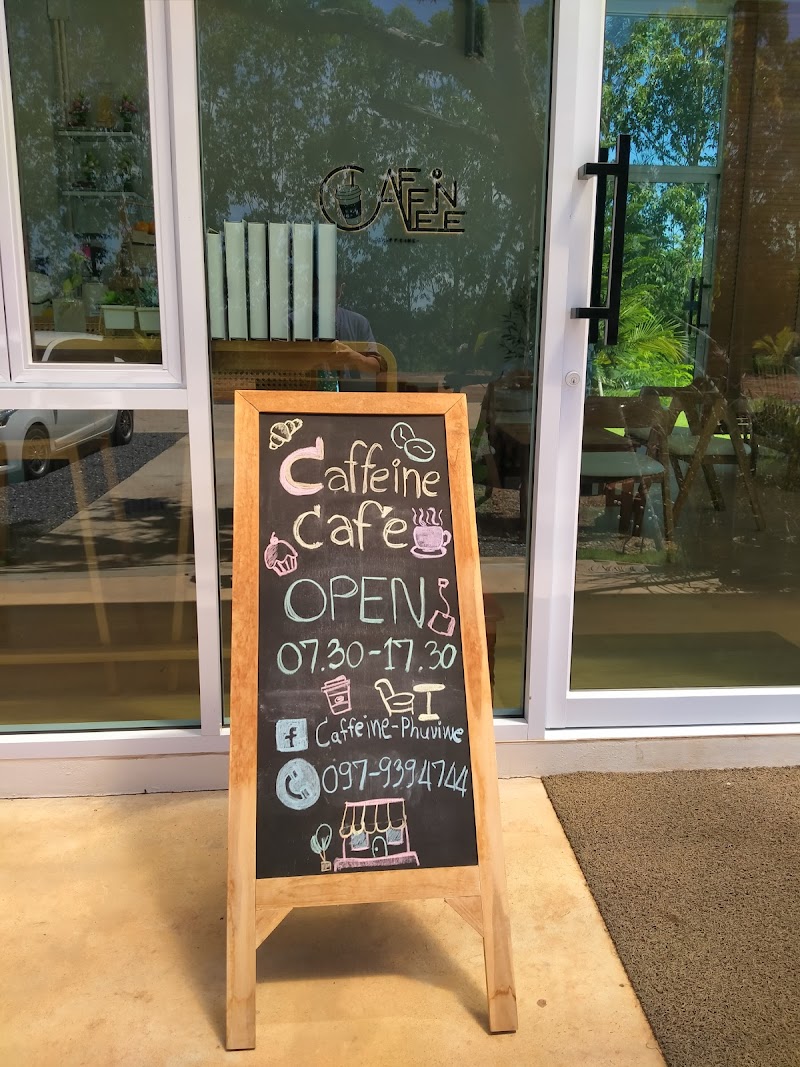 CAFFEiN
Caffeine
Café
OPEN
07.30-17.30
f Caffeine-Phuviwe
097-9394744